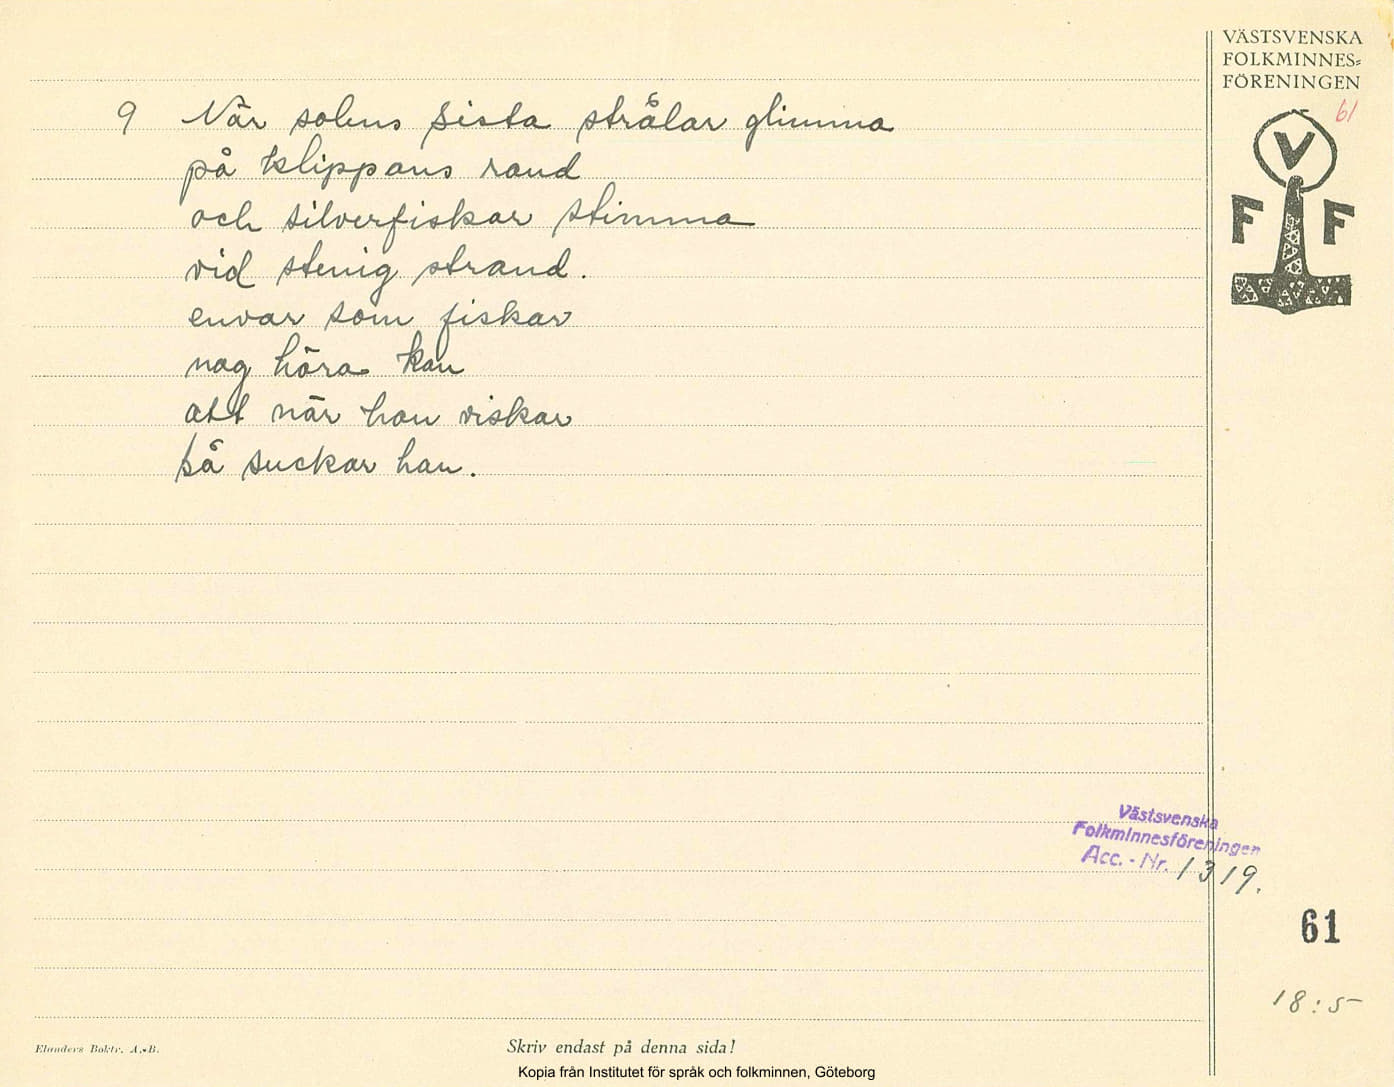 VÄSTSVENSKA
FOLKMINNES=
FÖRENINGEN
61
V
F F
9 När solens sista strålar glimma
på klippans rand
och silverfiskar stimma
vid stenig strand.
envar som fiskar
nog höra kan
att när han viskar
så suckar han.
Västsvenska
Folkminnesföreningen
Acc. - Nr. 1319.
61
18:5
Elanders Boktr. A.-B.
Skriv endast på denna sida!
Kopia från Institutet för språk och folkminnen, Göteborg